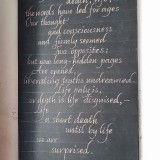 death, life
the words have led for ages
Our thought
god consciousness
and firmly seemed
no opposites;
but now long-hidden pages
Are opened,
liberating truths undreamed.
Life only is,
as death is life disguised, —
Life
a short death
until by life
we are
surprised.